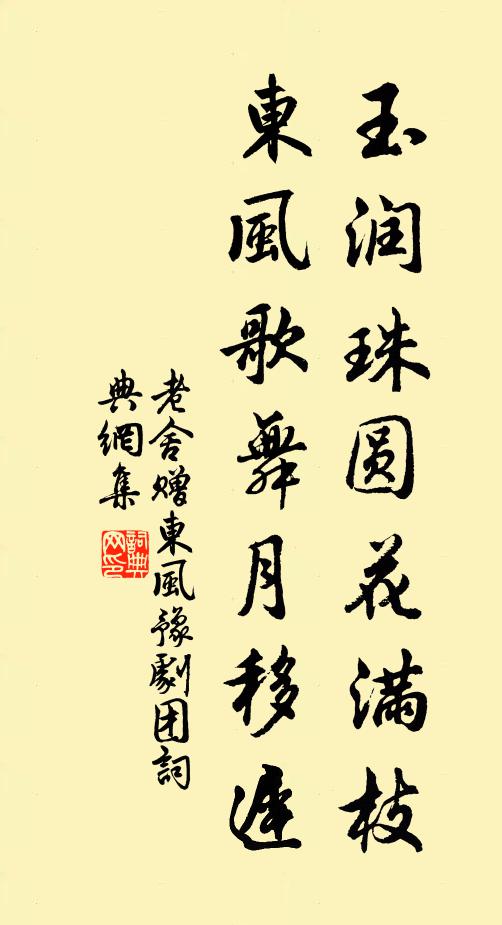 玉润珠圆花满枝
東風歌舞月移遲
老舍贈東風豫劇团詞
典網集
詞典
网印